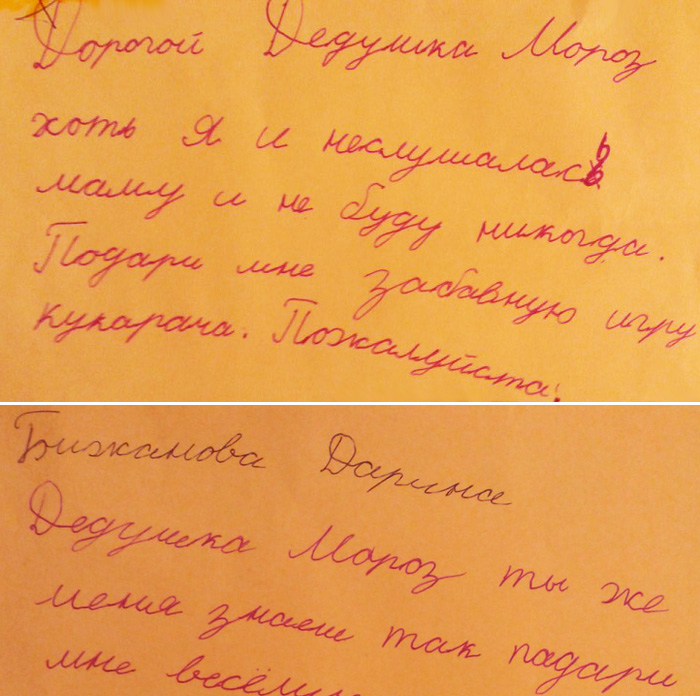 Дорогой Дедушка Мороз
хоть я и неслушалась
маму и не буду никогда.
Подари мне забавную игру
кукарача. Пожалуйста!
Бижанова Дарина
Дедушка Мороз ты же
меня знаеш так падари
мне весёлую